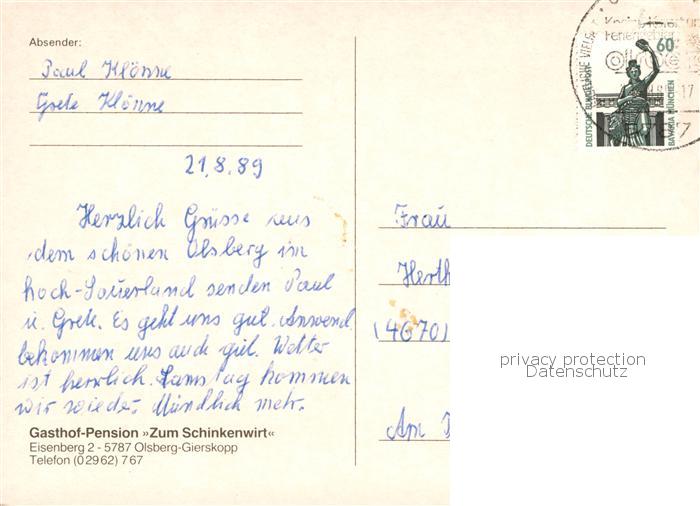 Absender:
Paul Klönne
Grete Klönne
21.8.89
Herzlich Grüsse aus
dem schönen Olsberg im
hoch-Sauerland senden Paul
u. Grete. Es geht uns gut. Anwend.
bekommen uns auch gut. Wetter
ist herrlich. Samstag kommen
wir wieder. Mündlich mehr.
Gasthof-Pension »Zum Schinkenwirt«
Eisenberg 2 - 5787 Olsberg-Gierskopp
Telefon (02962) 767
60
DEUTSCHE BUNDESPOST
BAVARIA MÜNCHEN
17
5787
Frau
Herth
(4670)
Am
privacy protection
Datenschutz